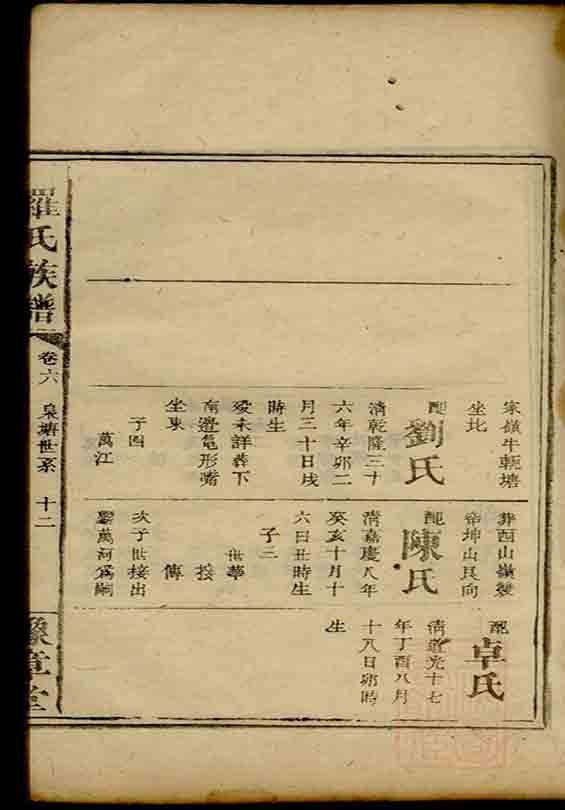 家嶺牛軛塘
坐北
配
劉氏
清乾隆三十
六年辛卯二
月三十日戌
時生
歿未詳葬下
南邉龜形嘴
坐東
子四
萬江
葬西山嶺
坤山艮向
配
陳氏
清嘉慶八年
癸亥十月十
六日丑時生
子三
世華
接
傳
次子世接出
萬河爲嗣
配
卓氏
清道光十七
年丁酉八月
十八日卯時
生
羅氏族譜
卷六
泉塘世系
十二
豫章堂